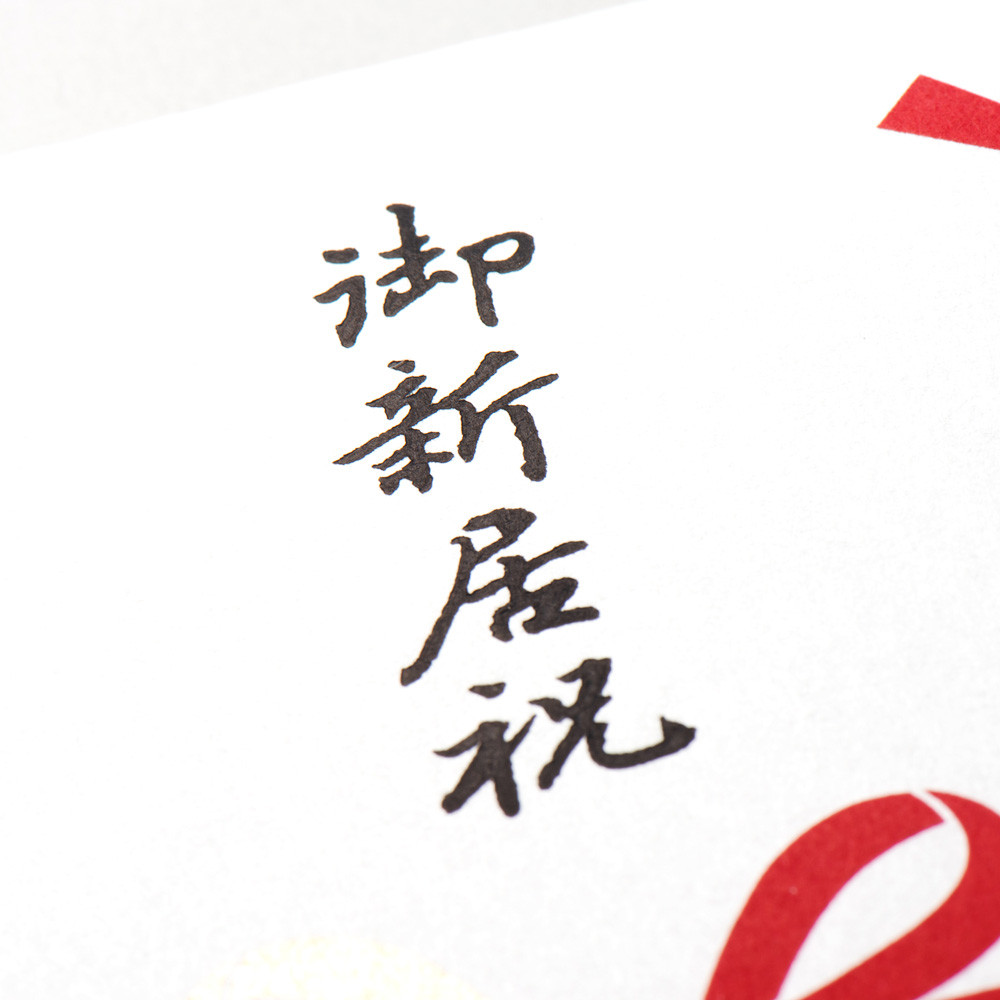 御新居祝